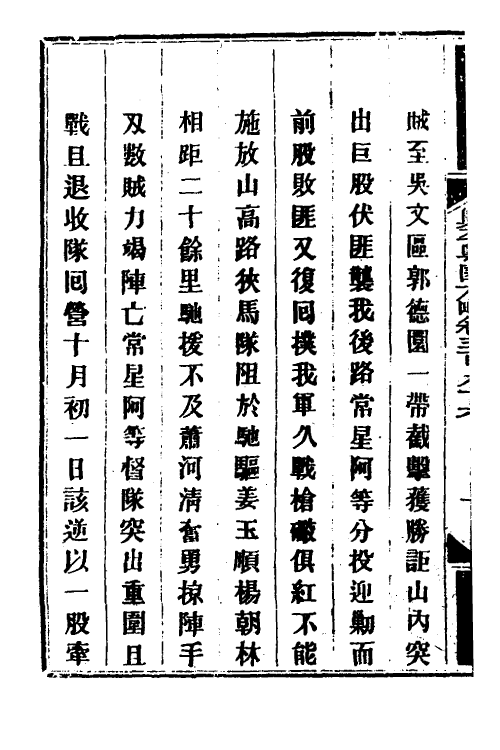 賊至吳文區郭德園一帶截擊獲勝詎山內突
出巨股伏匪襲我後路常星阿等分投迎勦而
前股敗匪又復囘撲我軍久戰槍礮俱紅不能
施放山高路狹馬隊阻於馳驅姜玉順楊朝林
相距二十餘里馳援不及蕭河清奮勇掠陣手
刃數賊力竭陣亡常星阿等督隊突出重圍且
戰且退收隊囘營十月初一日該逆以一股牽